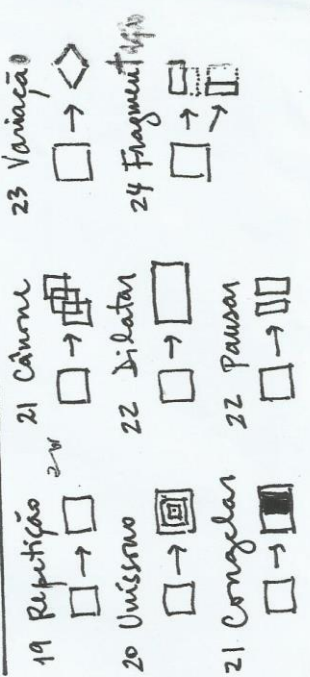 19 Repetição
20 Uníssono
21 Congelar
21 Cânone
22 Dilatar
22 Pausar
23 Variação
24 Fragmentação